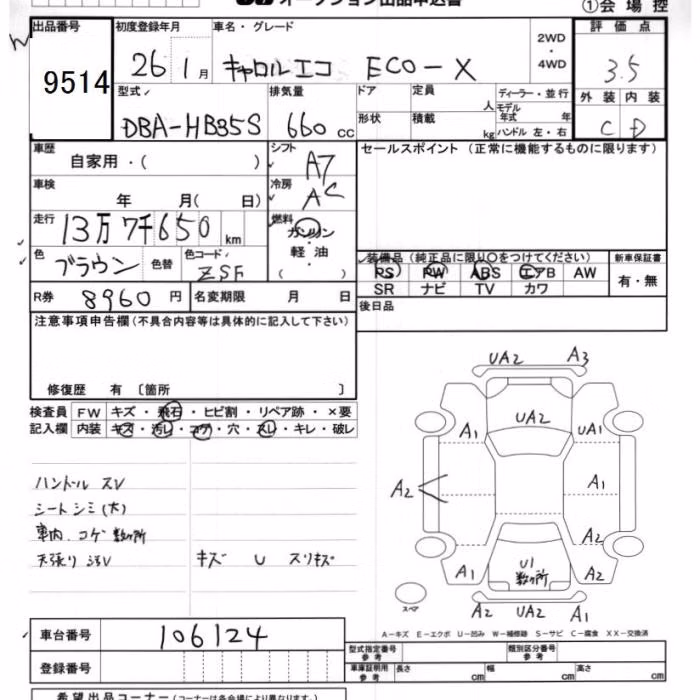 オークション出品申込書
①会場控
出品番号 初度登録年月 車名・グレード 2WD ・ 4WD 評価点
9514 26 1月 キャロルエコ ECO-X 3.5
型式 排気量 ドア 定員 人 ディーラー・並行 外装 内装
DBA-HB35S 660cc 形状 積載 kg モデル年式 年 ハンドル 左・右 C D
車歴 自家用・( ) シフト A7 セールスポイント(正常に機能するものに限ります)
車検 年 月( 日) 冷房 AC
走行 13万7千650km 燃料 ガソリン・軽油・( )
色 ブラウン 色替 色コード ZSF
装備品(純正品に限り○をつけてください) 新車保証書
PS PW ABS エアB AW 有・無
SR ナビ TV カワ
R券 8960円 名変期限 月 日 後日品
注意事項申告欄(不具合内容等は具体的に記入して下さい)
修復歴 有〔箇所 〕
検査員記入欄 FW キズ・飛石・ヒビ割・リペア跡・×要
内装 キズ・汚レ・コゲ・穴・スレ・キレ・破レ
ハンドル スレ
シートシミ(大)
車内、コゲ数ヶ所
天張り 汚レ キズ U スリキズ
UA2 A3
UA2
A1 UA1
A2 A1
A2
A1 U1 数ヶ所 A2
スペア
A2 UA2 A1
A-キズ E-エクボ U-凹み W-補修跡 S-サビ C-腐食 XX-交換済
車台番号 106124
登録番号
型式指定番号 参考 類別区分番号 参考
車庫証明用 参考 長さ cm 幅 cm 高さ cm
希望出品コーナー(コーナーは各会場により異なります。)